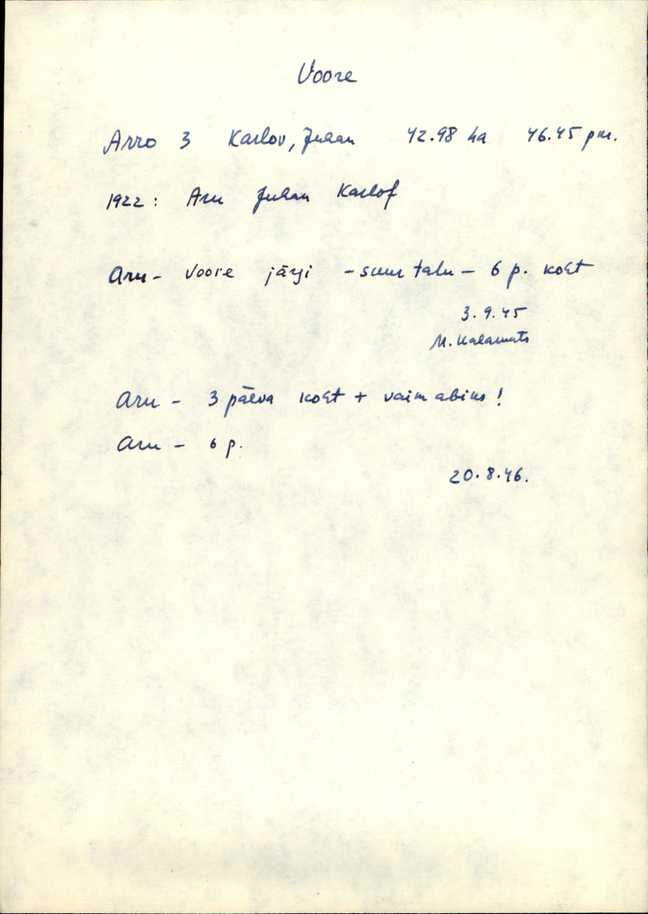 Voore
Arro 3 Karlov, Juhan 42.98 ha 46.45 pm.
1922: Aru Juhan Karlof
Aru - Voore järgi - suur talu - 6 p. koht
3.9.45
M. Kalamats
Aru - 3 päeva koht + vaim abiks!
Aru - 6 p.
20.8.46.